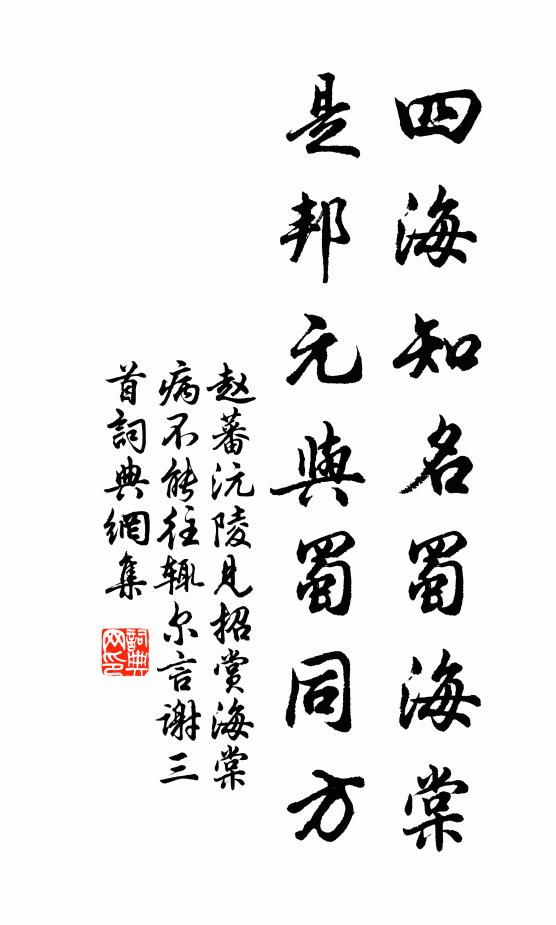 四海知名蜀海棠
是邦元與蜀同方
赵蕃沅陵見招赏海棠
病不能往辄尔言謝三
首詞典網集
詞典网印